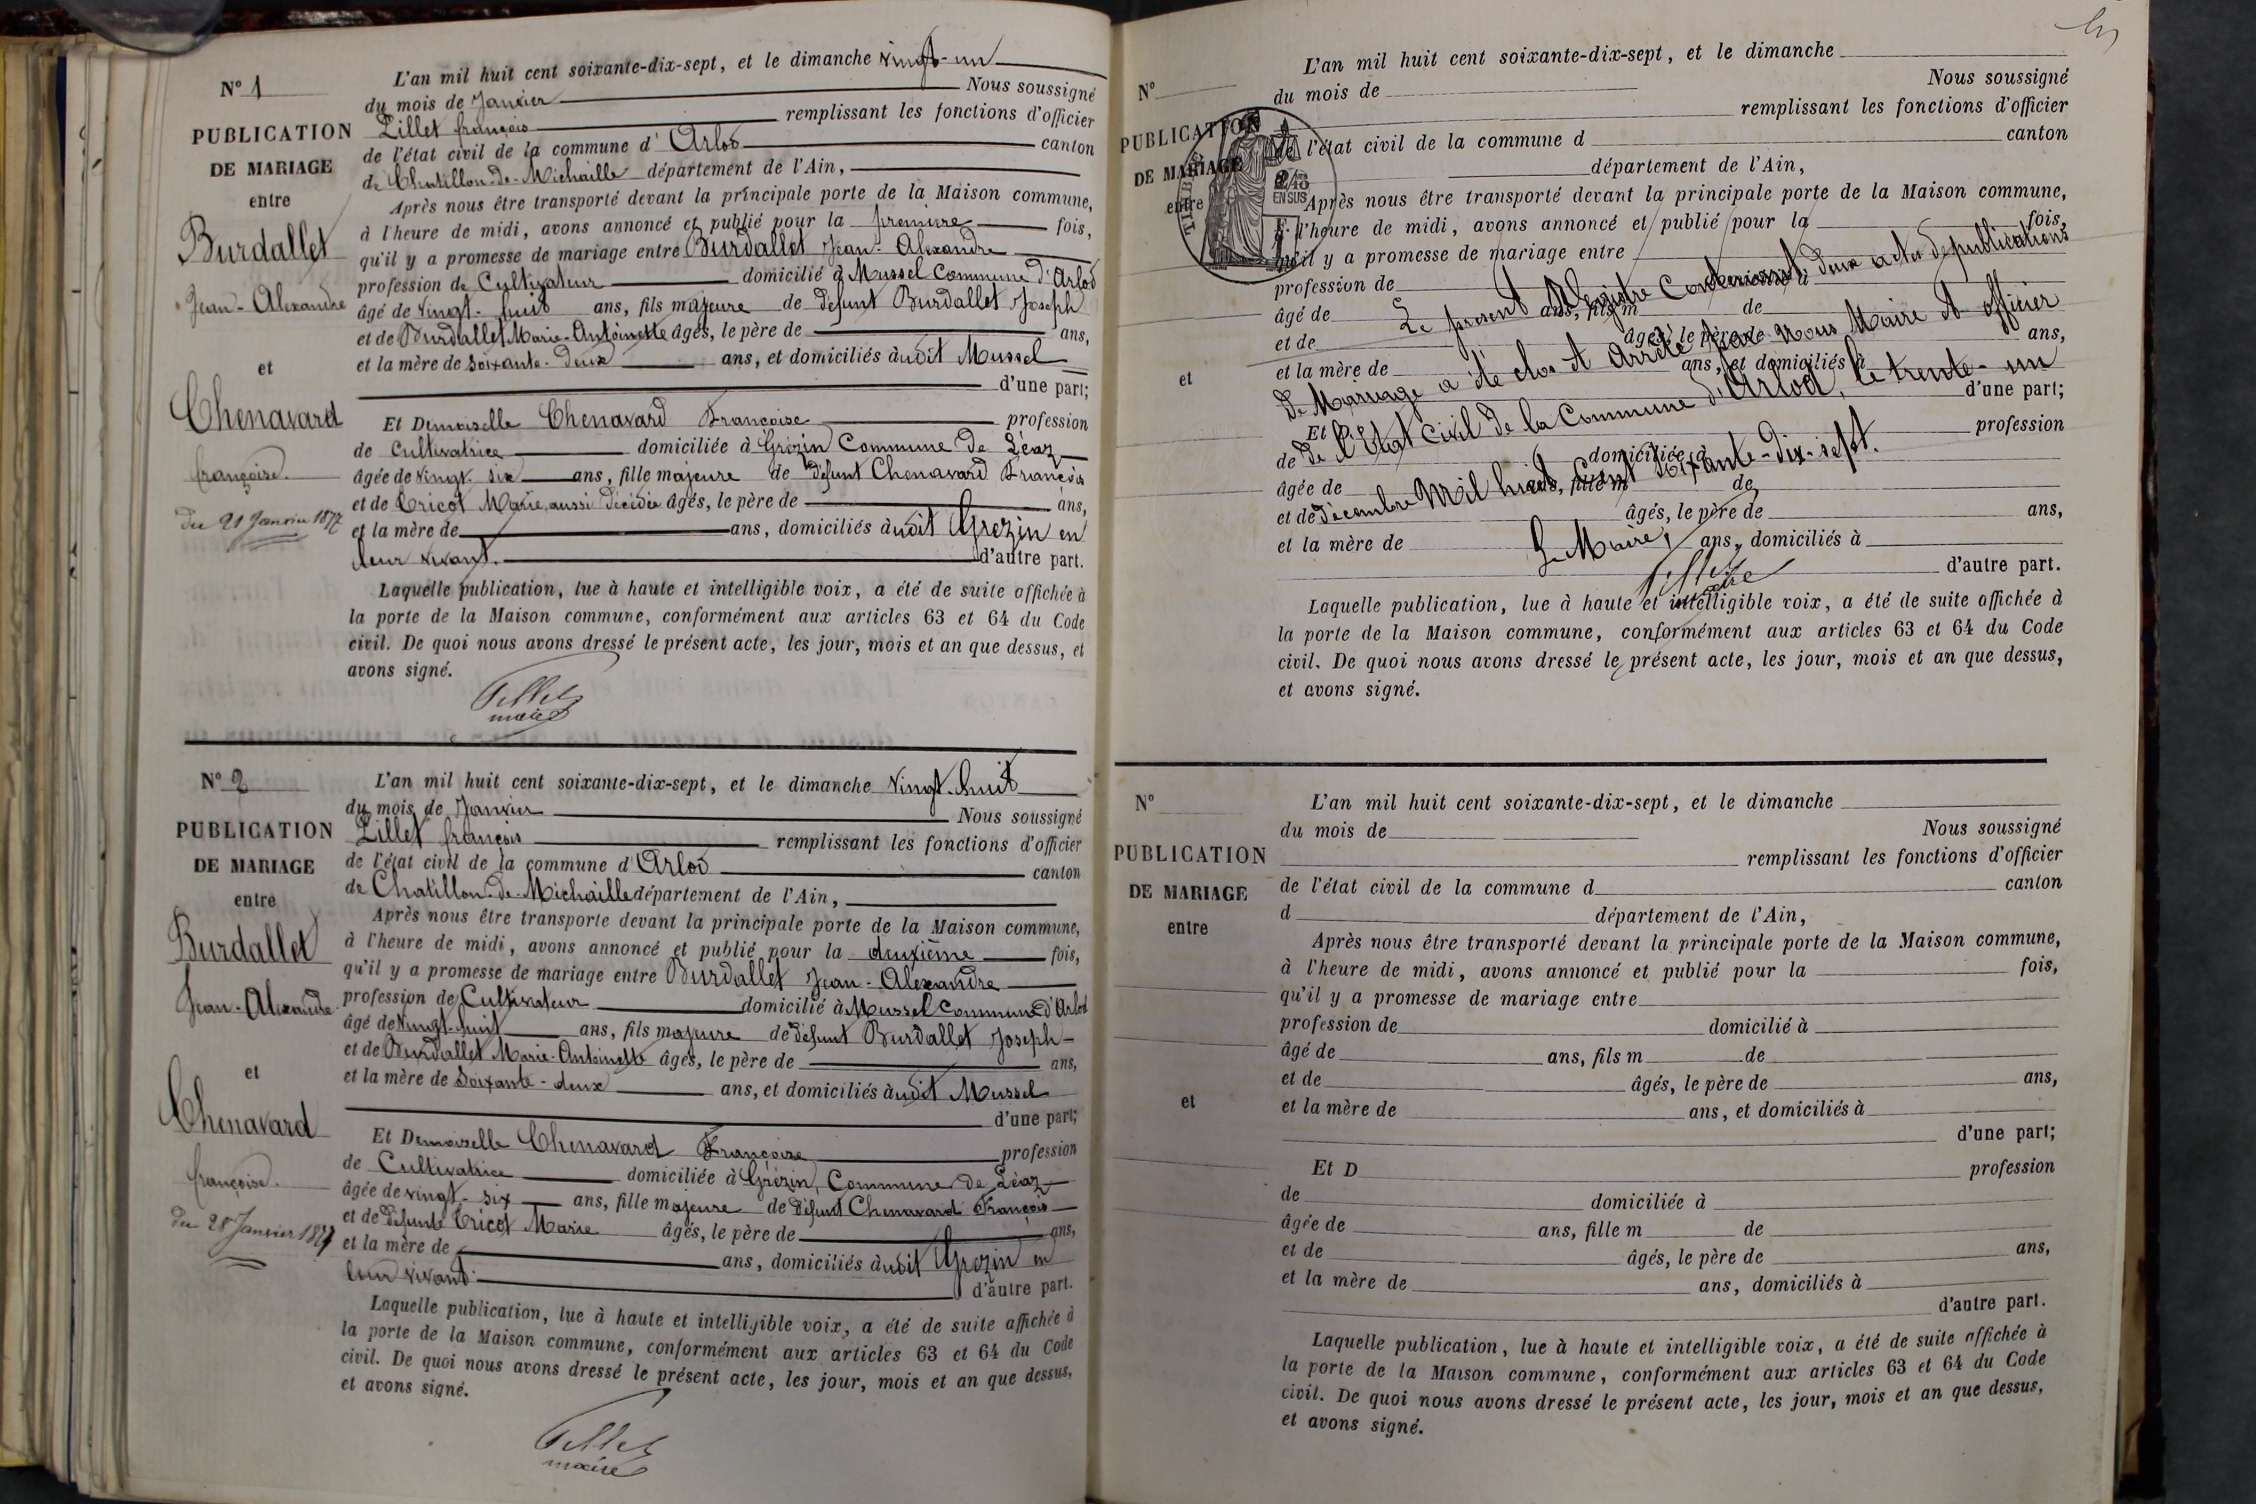 N° 1
PUBLICATION
DE MARIAGE
entre
Burdallet
Jean-Alexandre
et
Chenavard
françoise.
du 21 Janvier 1877
L'an mil huit cent soixante-dix-sept, et le dimanche vingt-un
du mois de Janvier Nous soussigné
Pillet françois remplissant les fonctions d'officier
de l'état civil de la commune d'Arlod canton
de Chatillon-de-Michaille département de l'Ain,
Après nous être transporté devant la principale porte de la Maison commune,
à l'heure de midi, avons annoncé et publié pour la première fois,
qu'il y a promesse de mariage entre Burdallet Jean-Alexandre
profession de Cultivateur domicilié à Mussel Commune d'Arlod
âgé de vingt-huit ans, fils majeure de défunt Burdallet Joseph
et de Burdallet Marie-Antoinette âgés, le père de ans,
et la mère de soixante-deux ans, et domiciliés audit Mussel
d'une part;
Et Demoiselle Chenavard Françoise profession
de Cultivatrice domiciliée à Grézin Commune de Léaz
âgée de vingt-six ans, fille majeure de défunt Chenavard François
et de Tricot Marie aussi décédée âgés, le père de ans,
et la mère de ans, domiciliés audit Grezin en
leur vivant. d'autre part.
Laquelle publication, lue à haute et intelligible voix, a été de suite affichée à
la porte de la Maison commune, conformément aux articles 63 et 64 du Code
civil. De quoi nous avons dressé le présent acte, les jour, mois et an que dessus, et
avons signé.
Pillet
maire
N° 2
PUBLICATION
DE MARIAGE
entre
Burdallet
Jean-Alexandre
et
Chenavard
françoise.
du 28 Janvier 1877
L'an mil huit cent soixante-dix-sept, et le dimanche vingt-huit
du mois de Janvier Nous soussigné
Pillet françois remplissant les fonctions d'officier
de l'état civil de la commune d'Arlod canton
de Chatillon-de-Michaille département de l'Ain,
Après nous être transporté devant la principale porte de la Maison commune,
à l'heure de midi, avons annoncé et publié pour la deuxième fois,
qu'il y a promesse de mariage entre Burdallet Jean-Alexandre
profession de Cultivateur domicilié à Mussel Commune d'Arlod
âgé de vingt-huit ans, fils majeure de défunt Burdallet Joseph
et de Burdallet Marie-Antoinette âgés, le père de ans,
et la mère de Soixante-deux ans, et domiciliés audit Mussel
d'une part;
Et Demoiselle Chenavard Françoise profession
de Cultivatrice domiciliée à Grézin, Commune de Léaz
âgée de vingt-six ans, fille majeure de défunt Chenavard François
et de défunte Tricot Marie âgés, le père de ans,
et la mère de ans, domiciliés audit Grezin en
leur vivant. d'autre part.
Laquelle publication, lue à haute et intelligible voix, a été de suite affichée à
la porte de la Maison commune, conformément aux articles 63 et 64 du Code
civil. De quoi nous avons dressé le présent acte, les jour, mois et an que dessus,
et avons signé.
Pillet
maire
N°
PUBLICATION
DE MARIAGE
entre
et
2/10
EN SUS
L'an mil huit cent soixante-dix-sept, et le dimanche
du mois de Nous soussigné
remplissant les fonctions d'officier
de l'état civil de la commune d canton
département de l'Ain,
Après nous être transporté devant la principale porte de la Maison commune,
à l'heure de midi, avons annoncé et publié pour la fois,
qu'il y a promesse de mariage entre
profession de domicilié à
âgé de ans, fils m de
et de âgés, le père de ans,
et la mère de ans, et domiciliés à
d'une part;
Et D profession
de domiciliée à
âgée de ans, fille m de
et de âgés, le père de ans,
et la mère de ans, domiciliés à
d'autre part.
Laquelle publication, lue à haute et intelligible voix, a été de suite affichée à
la porte de la Maison commune, conformément aux articles 63 et 64 du Code
civil. De quoi nous avons dressé le présent acte, les jour, mois et an que dessus,
et avons signé.
Le présent Registre Contenant deux actes de publications
De Mariage a été clos et arrêté par nous Maire et officier
De l'Etat Civil de la Commune d'Arlod, le trente-un
décembre mil huit Cent soixante-dix-sept.
Le Maire,
Pillet
maire
N°
PUBLICATION
DE MARIAGE
entre
et
L'an mil huit cent soixante-dix-sept, et le dimanche
du mois de Nous soussigné
remplissant les fonctions d'officier
de l'état civil de la commune d canton
d département de l'Ain,
Après nous être transporté devant la principale porte de la Maison commune,
à l'heure de midi, avons annoncé et publié pour la fois,
qu'il y a promesse de mariage entre
profession de domicilié à
âgé de ans, fils m de
et de âgés, le père de ans,
et la mère de ans, et domiciliés à
d'une part;
Et D profession
de domiciliée à
âgée de ans, fille m de
et de âgés, le père de ans,
et la mère de ans, domiciliés à
d'autre part.
Laquelle publication, lue à haute et intelligible voix, a été de suite affichée à
la porte de la Maison commune, conformément aux articles 63 et 64 du Code
civil. De quoi nous avons dressé le présent acte, les jour, mois et an que dessus,
et avons signé.